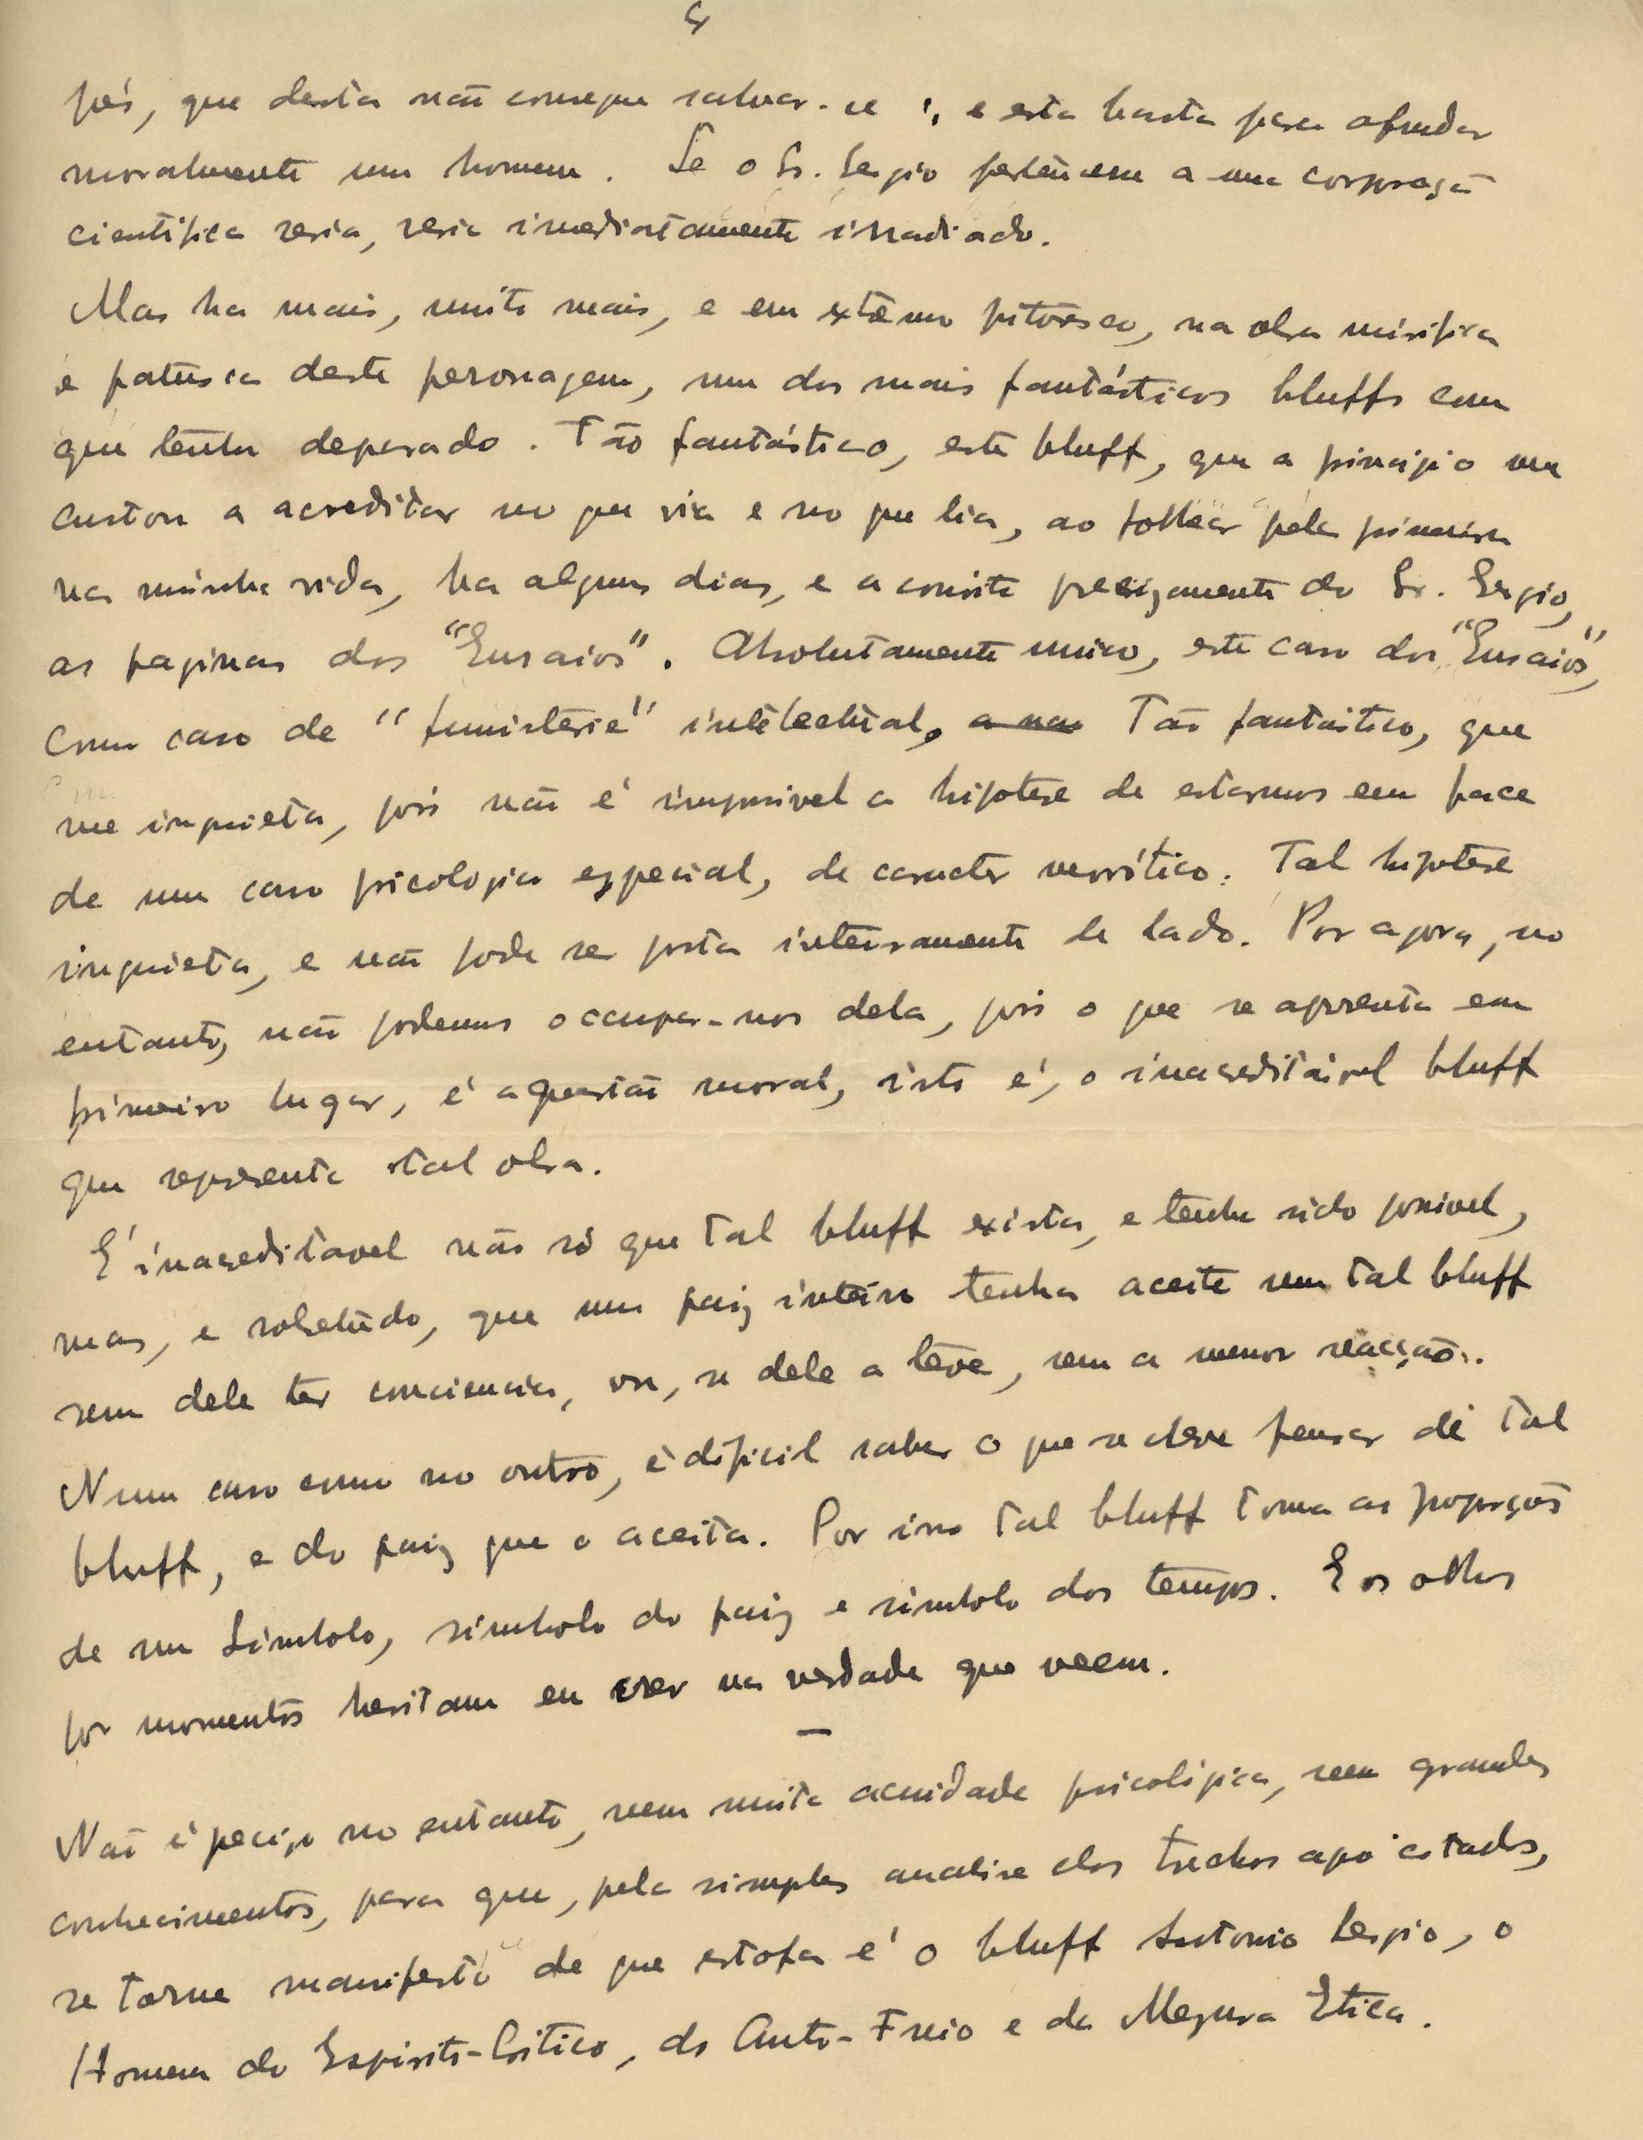 pés, que desta não consegue salvar-se ; e esta basta para afundar
moralmente um homem. Se o Sr. Sergio pertencem a uma corporação
cientifica seria, seria imediatamente irradiado.
Mas ha mais, muito mais, e em extremo pitoresco, na obra mirifica
e patusca deste personagem, um dos mais fantásticos bluffs com
que tenho deparado. Tão fantástico, este bluff, que a principio me
custou a acreditar no que via e no que lia, ao folhear pela primeira
na minha vida, ha alguns dias, e a convite precizamente do Sr. Sergio,
as paginas dos "Ensaios". Absolutamente unico, este caso dos "Ensaios",
como caso de "fumisterie" intelectual. Tão fantástico, que
me inquieta, pois não é impossivel a hipotese de estarmos em face
de um caso psicologico especial, de caracter nevrótico. Tal hipotese
inquieta, e não pode ser posta inteiramente de lado. Por agora, no
entanto, não podemos occupar-nos dela, pois o que se apresenta em
primeiro lugar, é a questão moral, isto é, o inacreditável bluff
que representa tal obra.
É inacreditavel não só que tal bluff exista, e tenha sido possivel,
mas, e sobretudo, que um paiz inteiro tenha aceite um tal bluff
sem dele ter consciencia, ou, se dele a teve, sem a menor reacção.
Num caso como no outro, é dificil saber o que se deve pensar de tal
bluff, e do paiz que o aceita. Por isso tal bluff toma as proporções
de um Simbolo, simbolo do paiz e simbolo dos tempos. E os olhos
por momentos hesitam em crer na verdade que veem.
—
Não é precizo no entanto, nem muita acuidade psicológica, nem grandes
conhecimentos, para que, pela simples analise dos trechos aqui citados,
se torne manifesto de que estofa é o bluff Antonio Sergio, o
Homem do Espirito-Critico, do Auto-Freio e da Mezura Etica.